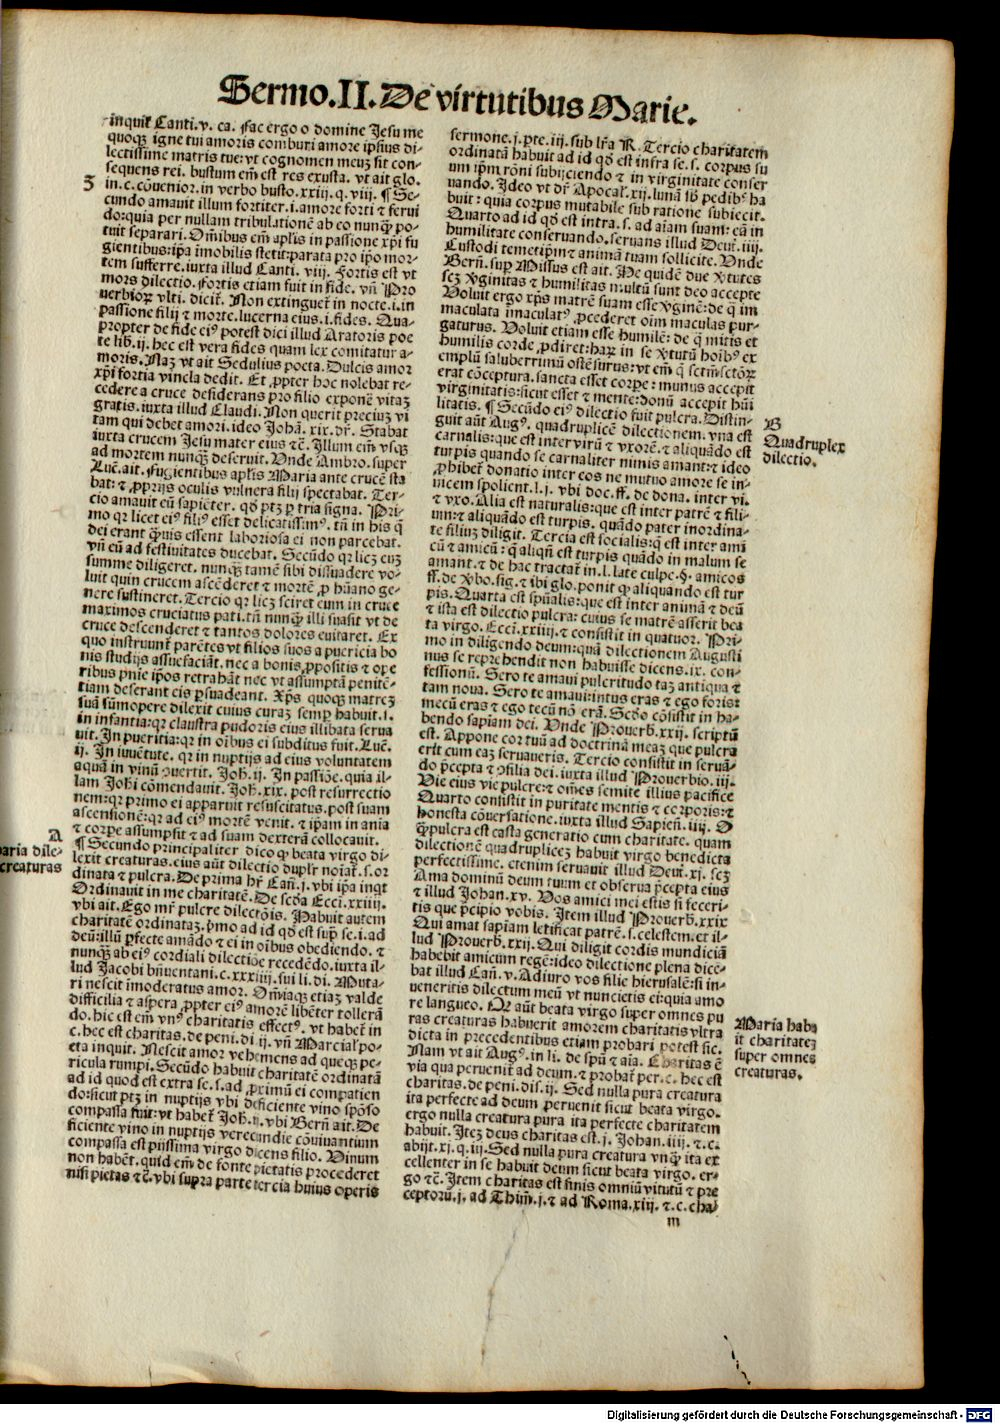 Sermo.II.De virtutibus Marie.
inquit Canti.v. ca. fac ergo o domine Jesu me
quoqz igne tui amoris comburi amore ipsius di-
lectissime matris tue: vt cognomen meuz sit con-
sequens rei. bustum em̄ est res exusta. vt ait glo.
in.c. cōuenior. in verbo busto. xxiij.q.viij. ¶ Se-
cundo amauit illum fortiter.i.amore forti ⁊ ferui
do: quia per nullam tribulationē ab eo nunqȝ po-
tuit separari. Oībus em̄ aplis in passione xp̄i fu
gientibus: ip̄a imobilis stetit: parata pro ip̄o mor-
tem sufferre. iuxta illud Canti. viij. Fortis est vt
mors dilectio. fortis etiam fuit in fide. vn̄ Pro
uerbioꝝ vlti. dicit. Non extinguet in nocte.i.in
passione filij ⁊ morte. lucerna eius.i.fides. Qua-
propter de fide eiꝰ potest dici illud Aratoris poe
te lib.ij. hec est vera fides quam lex comitatur a-
moris. Naz vt ait Sedulius poeta. Dulcis amor
xp̄i fortia vincla dedit. Et ꝓpter hoc nolebat re-
cedere a cruce desiderans pro filio exponē vitaz
gratis. iuxta illud Claudi. Non querit preciuz vi
tam qui debet amori. ideo Johā. xix. dr̄. Stabat
iuxta crucem Jesu mater eius ⁊c̄. Illum em̄ vsqȝ
ad mortem nunqȝ deseruit. Vnde Ambro. super
Luc̄. ait. fugientibus aplis Maria ante crucē sta
bat: ⁊ ꝓprijs oculis vulnera filij spectabat. Ter-
cio amauit eū sapiēter. qd̄ ptz ꝑ tria signa. Pri-
mo qꝛ licet eiꝰ filiꝰ esset delicatissimꝰ. tn̄ in his q̄
dei erant qȝuis essent laboriosa ei non parcebat.
vn̄ eū ad festiuitates ducebat. Secūdo qꝛ licz euz
summe diligeret. nunqȝ tamē sibi dissuadere vo-
luit quin crucem ascēderet ⁊ mortē ꝓ hūano ge-
nere sustineret. Tercio qꝛ licz sciret eum in cruce
maximos cruciatus pati. tn̄ nunqȝ illi suasit vt de
cruce descenderet ⁊ tantos dolores euitaret. Ex
quo instruunt̄ parētes vt filios suos a puericia bo
nis studijs assuefaciāt. nec a bonis ꝓpositis ⁊ ope
ribus pn̄ie ip̄os retrahāt nec vt assumptā penitē-
tiam deserant eis ꝑsuadeant. Xp̄s quoqȝ matrez
suā sūmopere dilexit cuius curaz semꝑ habuit.i.
in infantia: qꝛ claustra pudoris eius illibata serua
uit. In pueritia: qꝛ in oībus ei subditus fuit. Luc̄.
ij. In iuuētute. qꝛ in nuptijs ad eius voluntatem
aquā in vinū ꝯuertit. Joh̄. ij. In passiōe. quia il-
lam Joh̄i cōmendauit. Joh̄. xix. post resurrectio
nem: qꝛ primo ei apparuit resuscitatus. post suam
ascensionē: qꝛ ad eiꝰ mortē venit. ⁊ ip̄am in ania
⁊ corpe assumpsit ⁊ ad suam dexterā collocauit.
¶ Secundo principaliter dico qȝ beata virgo di-
lexit creaturas. eius aūt dilectio duplr̄ noīat̄. s. or
dinata ⁊ pulcra. De prima hr̄ Can̄. j. vbi ip̄a inqt
Ordinauit in me charitatē. De scd̄a Ecci. xxiiij.
vbi ait. Ego mr̄ pulcre dilectōis. Habuit autem
charitatē ordinataz. pmo ad id qd̄ est sup̄ se.i. ad
deū: illū ꝑfecte amādo ⁊ ei in oībus obediendo. ⁊
nunqȝ ab eiꝰ cordiali dilectiōe recedēdo. iuxta il-
lud Jacobi bn̄uentani. c. xxxiiij. sui li. di. Muta-
ri nescit imoderatus amor. Om̄iaqȝ etiaz valde
difficilia ⁊ aspera ꝓpter eiꝰ amorē libēter tollerā
do. hic est em̄ vnꝰ charitatis effectꝰ. vt habet̄ in
c. hec est charitas. de peni. di ij. vn̄ Marcial̄ po-
eta inquit. Nescit amor vehemens ad queqȝ pe-
ricula rumpi. Secūdo habuit charitatē ordinatā
ad id quod est extra se. s. ad ꝓximū ei compatien
do: sicut ptz in nuptijs vbi deficiente vino spōso
compassa fuit: vt habet̄ Joh̄. ij. vbi Bern̄ ait. De
ficiente vino in nuptijs verecundie cōuiuantium
compassa est pijssima virgo dicens filio. Vinum
non habēt. quid em̄ de fonte pietatis procederet
nisi pietas ⁊c̄. vbi supra parte tercia huius operis
3
A
aria dile-
creaturas
sermone. j. pte. iij. sub lr̄a R. Tercio charitatem
ordinatā habuit ad id qd̄ est infra se. s. corpus su
um ip̄m rōni subijciendo ⁊ in virginitate conser
uando. Ideo vt dr̄ Apocal̄. xij. lunā sb̄ pedibꝰ ha
buit: quia corpus mutabile sub ratione subiecit.
Quarto ad id qd̄ est intra. s. ad aīam suam: eā in
humilitate conseruando. seruans illud Deut̄. iiij.
Custodi temetip̄m ⁊ animā tuam sollicite. Vnde
Bern̄. sup̄ Missus est ait. Pe quidē due v̄tutes
sez v̄ginitas ⁊ humilitas multū sunt deo accepte
Voluit ergo xp̄s matrē suam esse v̄ginē: de q̄ im
maculata īmaculatꝰ ꝓcederet oīm maculas pur-
gaturus. Voluit etiam esse humilē: de q̄ mitis et
humilis corde ꝓdiret: haꝝ in se v̄tutū hoībꝰ ex
emplū saluberrimū ostēsurus: vt em̄ q̄ sctm̄ sctoꝝ
erat cōceptura. sancta esset corpe: munus accepit
virginitatis: sicut esset ⁊ mente: donū accepit hūi
litatis. ¶ Secūdo eiꝰ dilectio fuit pulcra. Distin-
guit aūt Augꝰ. quadruplicē dilectionem. vna est
carnalis: que est inter virū ⁊ vxorē. ⁊ aliquādo est
turpis quando se carnaliter nimis amant: ⁊ ideo
ꝓhibet̄ donatio inter eos ne mutuo amore se in-
uicem spolient. l. j. vbi doc. ff. de dona. inter vi.
⁊ vxo. Alia est naturalis: que est inter patrē ⁊ fili-
um: ⁊ aliquādo est turpis. quādo pater inordina-
te filium diligit. Tercia est socialis: q̄ est inter ami
cū ⁊ amicū: q̄ aliqn̄ est turpis quādo in malum se
amant. ⁊ de hac tractat̄ in. l. late culpe. §. amicos
ff. de v̄bo. sig. ⁊ ibi glo. ponit qȝ aliquando est tur
pis. Quarta est spūalis: que est inter animā ⁊ deū
⁊ ista est dilectio pulcra: cuius se matrē asserit bea
ta virgo. Ecci. xxiiij. ⁊ consistit in quatuor. Pri-
mo in diligendo deum: quā dilectionem Augusti
nus se reprehendit non habuisse dicens. ix. con-
fessionū. Sero te amaui pulcritudo taz antiqua ⁊
tam noua. Sero te amaui: intus eras ⁊ ego foris:
mecū eras ⁊ ego tecū nō erā. Scd̄o cōsistit in ha-
bendo sapiam dei. Vnde Prouerb. xxij. scriptū
est. Appone cor tuū ad doctrinā meaz que pulcra
erit cum eaz seruaueris. Tercio consistit in seruā-
do p̄cepta ⁊ ꝯsilia dei. iuxta illud Prouerbio. iij.
Vie eius vie pulcre: ⁊ om̄es semite illius pacifice
Quarto consistit in puritate mentis ⁊ corporis: ⁊
honesta cōuersatione. iuxta illud Sapien̄. iiij. O
qȝ pulcra est casta generatio cum charitate. quam
dilectionē quadruplicez habuit virgo benedicta
perfectissime. etenim seruauit illud Deut̄. xj. sez
Ama dominū deum tuum et obserua p̄cepta eius
⁊ illud Johan. xv. Vos amici mei estis si feceri-
tis que p̄cipio vobis. Item illud Prouerb. xxix
Qui amat sapīam letificat patrē. s. celestem. et il-
lud Prouerb. xxij. Qui diligit cordis mundiciā
habebit amicum regē: ideo dilectione plena dicē-
bat illud Can̄. v. Adiuro vos filie hierusalē: si in-
ueneritis dilectum meū vt nuncietis ei: quia amo
re langueo. Qꝛ aūt beata virgo super omnes pu
ras creaturas habuerit amorem charitatis vltra
dicta in precedentibus etiam probari potest sic.
Nam vt ait Augꝰ. in li. de spū ⁊ aīa. Charitas ē
via qua peruenit̄ ad deum. ⁊ probat̄ per. c. hec est
charitas. de peni. dis. ij. Sed nulla pura creatura
ita perfecte ad deum peruenit sicut beata virgo.
ergo nulla creatura pura ita perfecte charitatem
habuit. Itez deus charitas est. j. Johan. iiij. ⁊. c.
abijt. xj. q. iij. Sed nulla pura creatura vnqȝ ita ex
cellenter in se habuit deum sicut beata virgo. er-
go ⁊c̄. Item charitas est finis omniū virtutū ⁊ pre
ceptorū. j. ad Thim̄. j. ⁊ ad Roma. xiij. ⁊. c. cha-
m
B
Quadruplex
dilectio.
Maria habu
it charitatez
super omnes
creaturas.
Digitalisierung gefördert durch die Deutsche Forschungsgemeinschaft - DFG